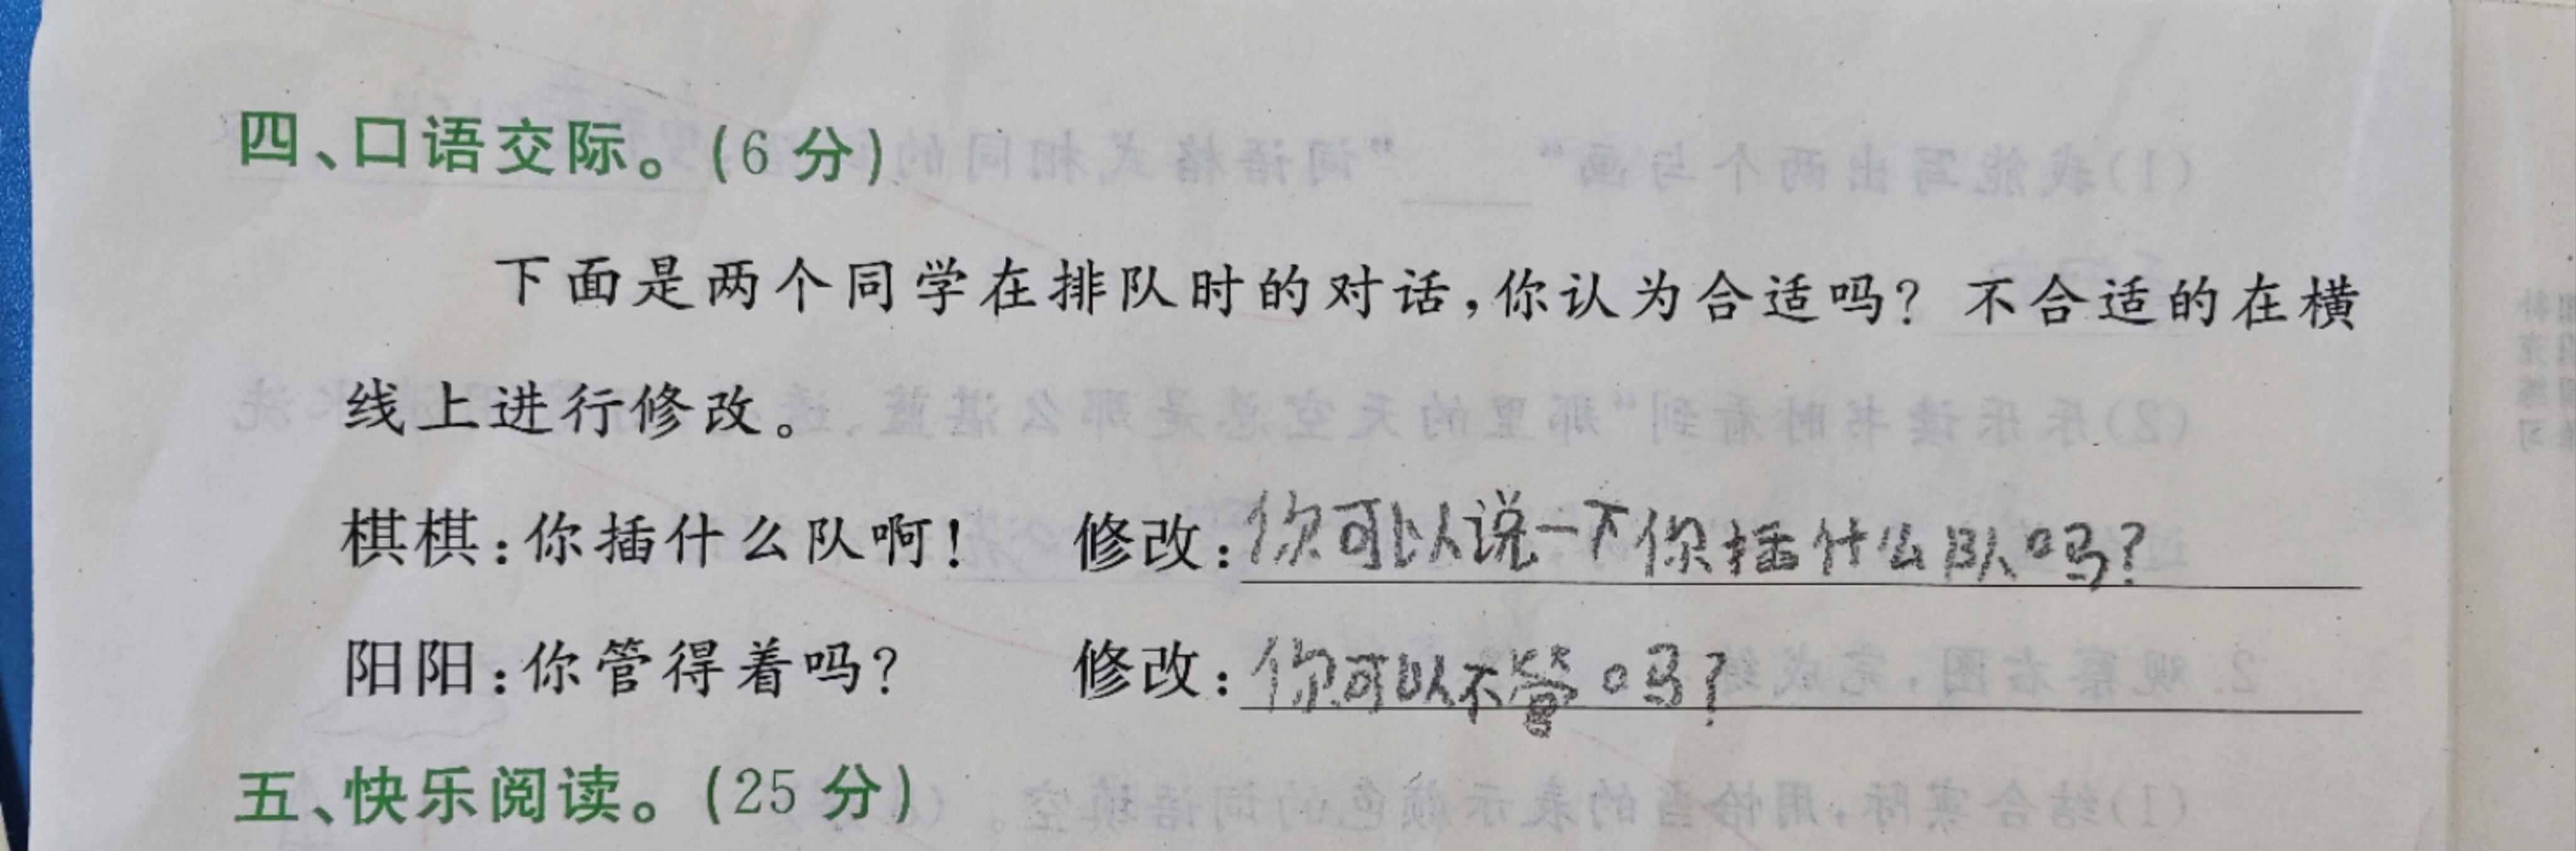 四、口语交际。(6分)
下面是两个同学在排队时的对话,你认为合适吗？不合适的在横
线上进行修改。
棋棋:你插什么队啊！ 修改:你可以说一下你插什么队吗？
阳阳:你管得着吗？ 修改:你可以不管吗？
五、快乐阅读。(25分)